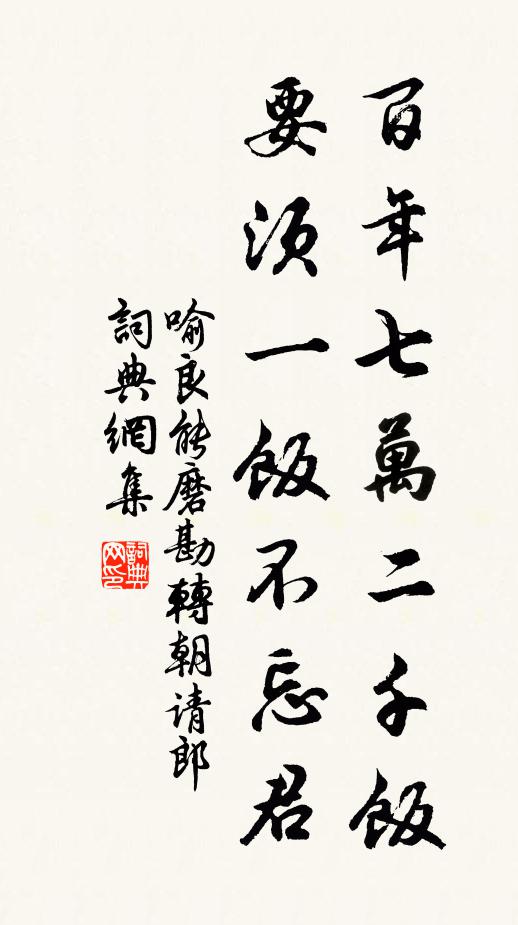 百年七萬二千飯
要須一飯不忘君
喻良能磨勘轉朝请郎
詞典網集
詞典网印